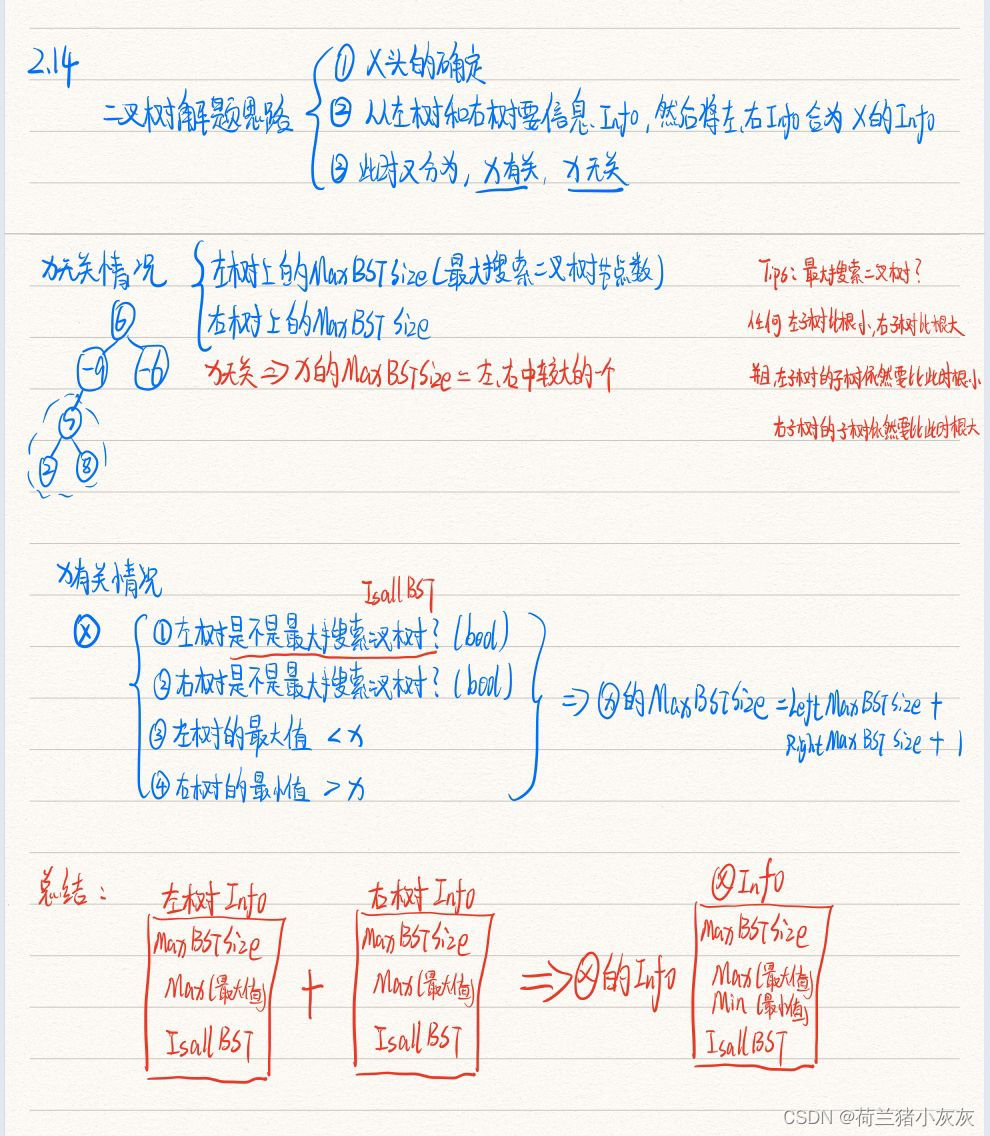 2.14
① X头的确定
二叉树解题思路
② 从左树和右树要信息Info,然后将左、右Info合为X的Info
③ 此时又分为,X有关,X无关
X无关情况
左树上的MaxBSTSize(最大搜索二叉树节点数)
右树上的MaxBSTSize
X无关 => X的MaxBSTSize = 左、右中较大的一个
6
-9
-6
5
2
8
Tips: 最大搜索二叉树?
任何左子树比根小,右子树比根大
并且左子树的子树依然要比此时根小
右子树的子树依然要比此时根大
X有关情况
IsallBST
X
①左树是不是最大搜索二叉树?(bool)
②右树是不是最大搜索二叉树?(bool)
③左树的最大值 < X
④右树的最小值 > X
=> X的MaxBSTSize = LeftMaxBSTSize +
RightMaxBSTSize + 1
总结:
左树Info
MaxBSTSize
Max(最大值)
IsallBST
+
右树Info
MaxBSTSize
Max(最大值)
IsallBST
=> X的Info
X Info
MaxBSTSize
Max(最大值)
Min(最小值)
IsallBST
CSDN @荷兰猪小灰灰